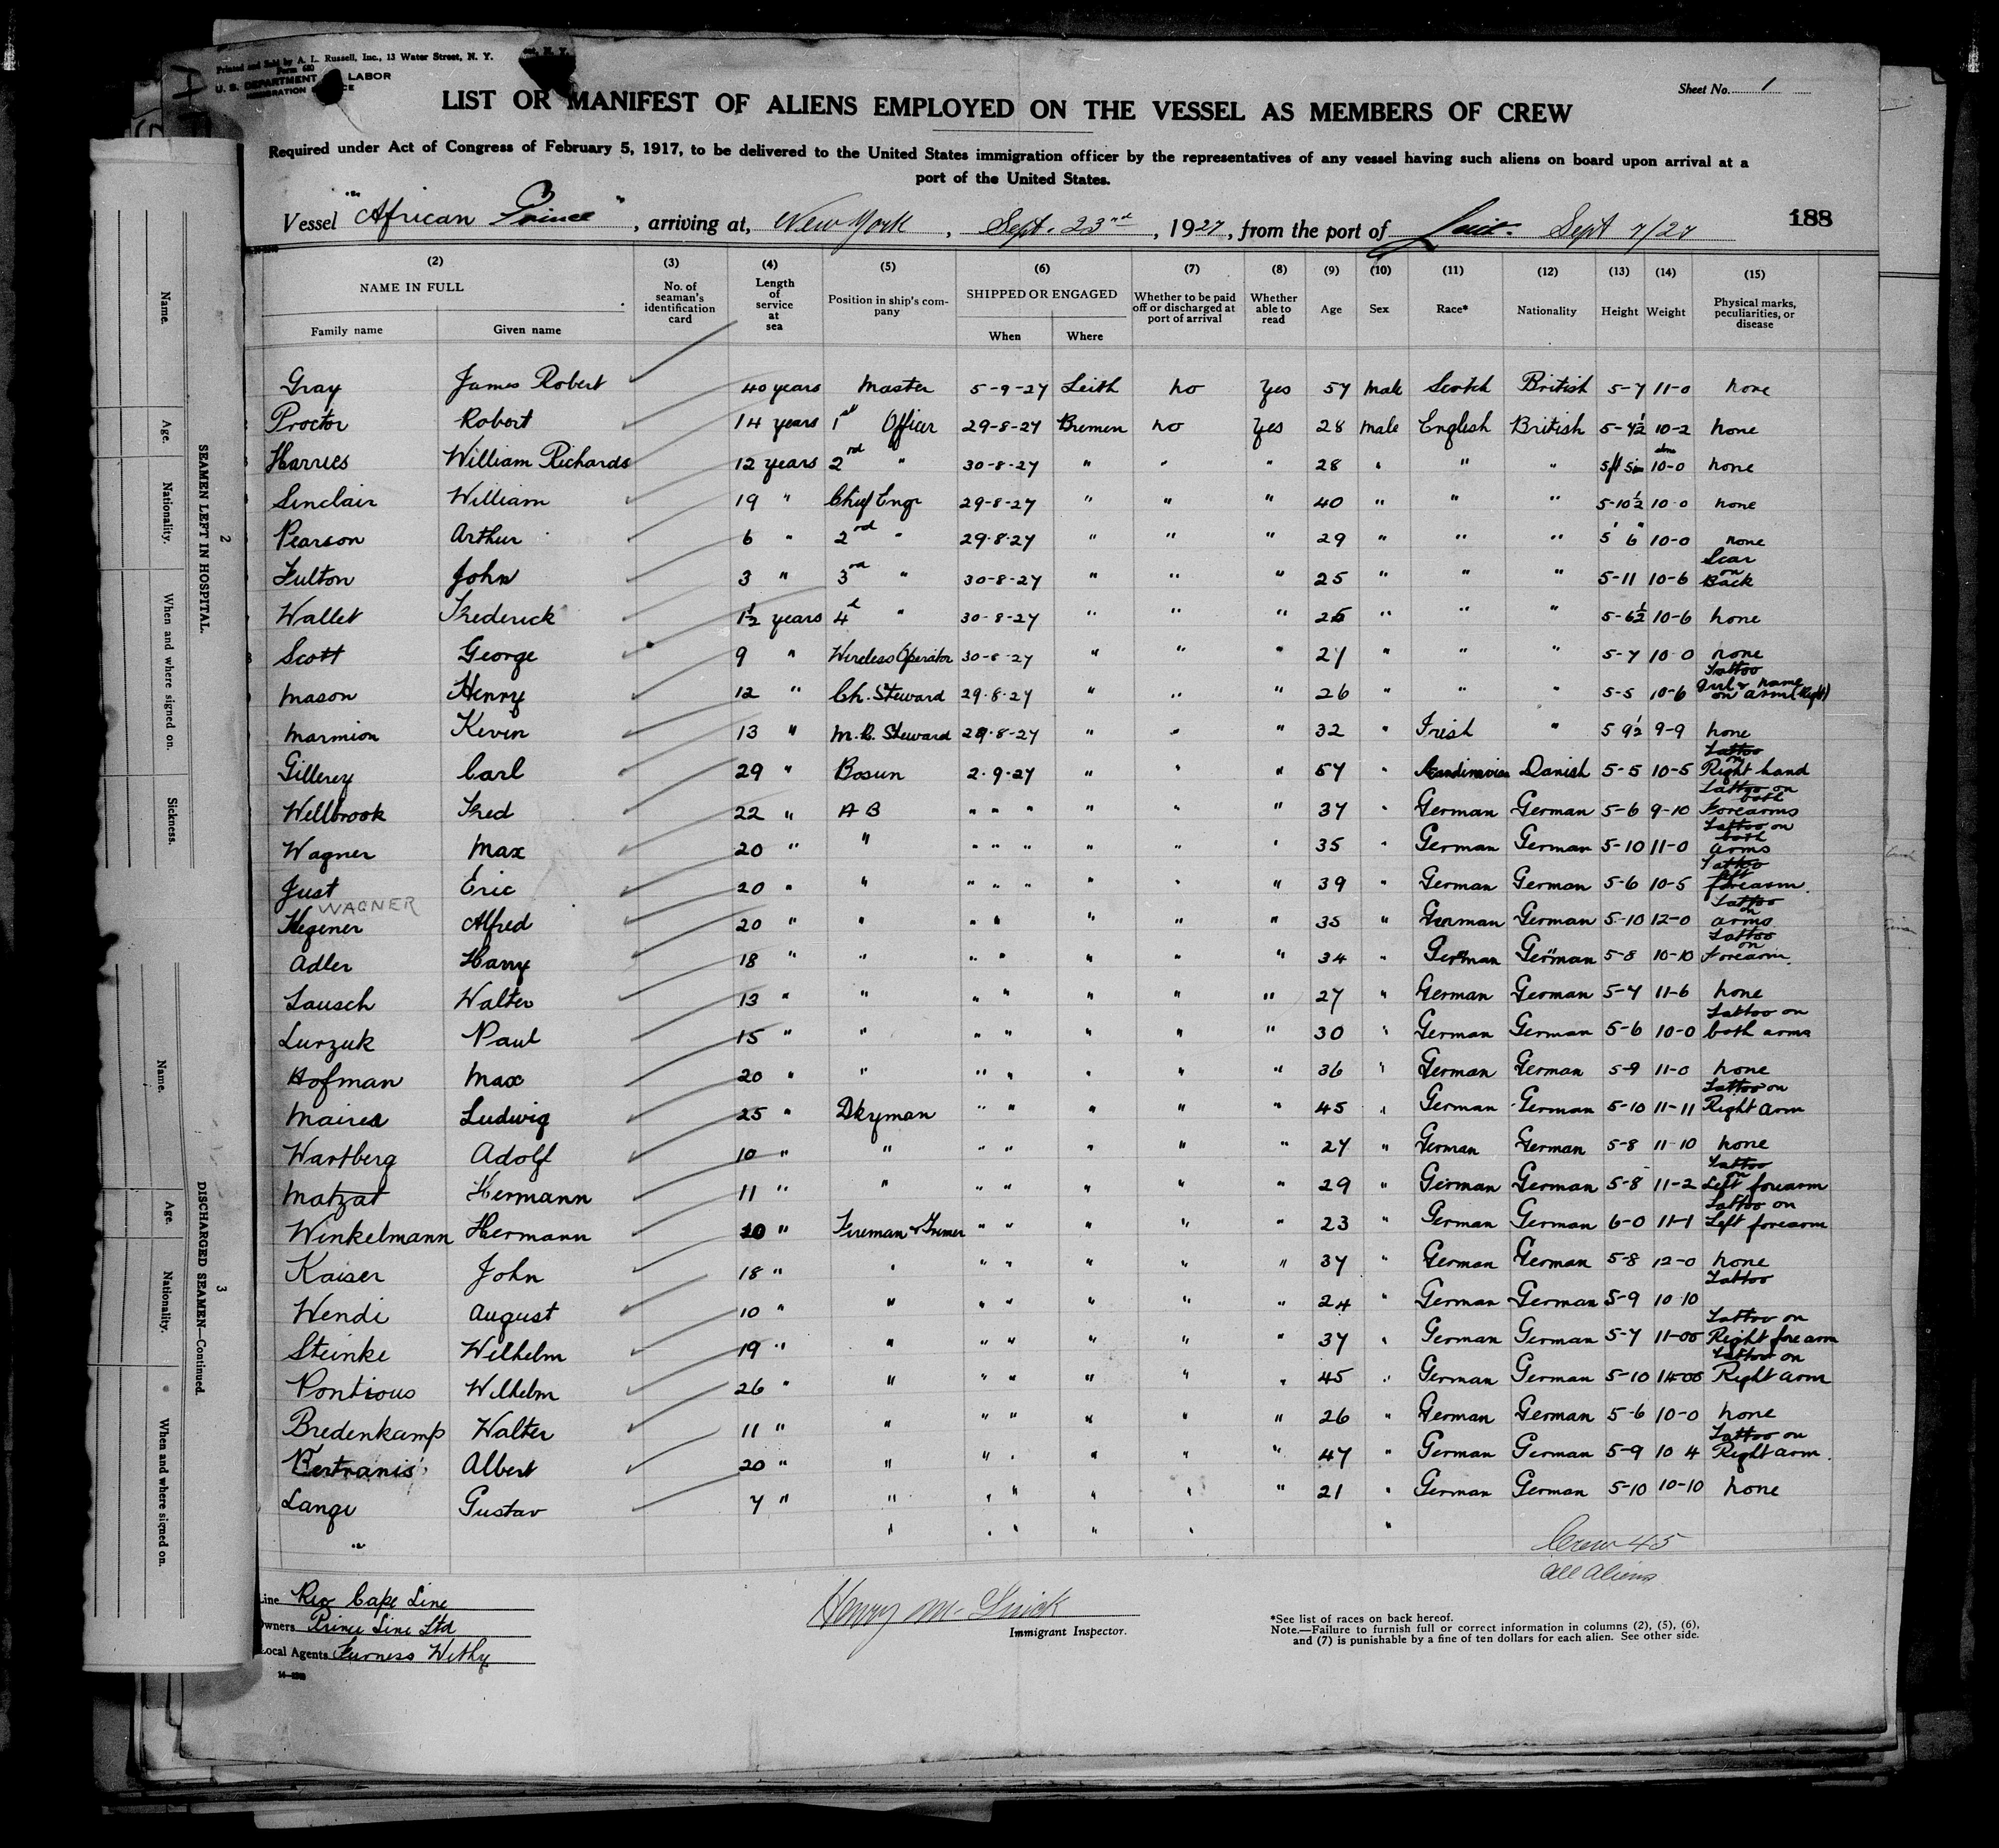 Printed and Sold by A. L. Russell, Inc., 13 Water Street, N. Y.
Form 680
U. S. DEPARTMENT LABOR
Sheet No. 1
LIST OR MANIFEST OF ALIENS EMPLOYED ON THE VESSEL AS MEMBERS OF CREW
Required under Act of Congress of February 5, 1917, to be delivered to the United States immigration officer by the representatives of any vessel having such aliens on board upon arrival at a
port of the United States.
Vessel "African Prince", arriving at, New York, Sept. 23rd, 1927, from the port of Sept 7/27
188
(2) (3) (4) (5) (6) (7) (8) (9) (10) (11) (12) (13) (14) (15)
NAME IN FULL
Family name Given name
No. of seaman's identification card
Length of service at sea
Position in ship's company
SHIPPED OR ENGAGED
When Where
Whether to be paid off or discharged at port of arrival
Whether able to read
Age Sex Race* Nationality Height Weight
Physical marks, peculiarities, or disease
Gray James Robert 40 years Master 5-9-27 Leith no Yes 57 male Scotch British 5-7 11-0 none
Proctor Robert 14 years 1st Officer 29-8-27 Bremen no Yes 28 male English British 5-7½ 10-2 none
Harries William Richards 12 years 2nd " 30-8-27 " " " 28 " " " 5ft 5in 10-0 none
Sinclair William 19 " Chief Engr 29-8-27 " " " 40 " " " 5-10½ 10-0 none
Pearson Arthur 6 " 2nd " 29-8-27 " " " 29 " " " 5' 6" 10-0 none
Fulton John 3 " 3rd " 30-8-27 " " " 25 " " " 5-11 10-6 Scar on Back
Wallet Frederick 1½ years 4 " 30-8-27 " " " " " " 5-6½ 10-6 none
Scott George 9 " Wireless Operator 30-8-27 " " " 27 " " " 5-7 10-0 none
Mason Henry 12 " Ch. Steward 29-8-27 " " " 26 " " " 5-5 10-6 Tattoo Girl & name on arm (Right)
Marmion Kevin 13 " M.R. Steward 29-8-27 " " " 32 " Irish " 5 9½ 9-9 none
Gillerey Carl 29 " Bosun 2-9-27 " " " 57 " Scandinavian Danish 5-5 10-5 Tattoo on Right hand
Wellbrook Fred 22 " A B " " " " " " 37 " German German 5-6 9-10 Tattoo on both Forearms
Wagner Max 20 " " " " " " " " 35 " German German 5-10 11-0 Tattoo on both arms
Just Eric 20 " " " " " " " " 39 " German German 5-6 10-5 Tattoo left forearm.
WAGNER
Hegener Alfred 20 " " " " " " " 35 " German German 5-10 12-0 Tattoo on arms
Adler Harry 18 " " " " " " " 34 " German German 5-8 10-10 Tattoo on Forearm.
Lausch Walter 13 " " " " " " " 27 " German German 5-7 11-6 none
Lurzuk Paul 15 " " " " " " " 30 " German German 5-6 10-0 Tattoo on both arms
Hofman Max 20 " " " " " " " 36 " German German 5-9 11-0 none
Ludwig 25 " Dkyman " " " " " 45 " German German 5-10 11-11 Tattoo on Right arm
Wartberg Adolf 10 " " " " " " " 27 " German German 5-8 11-10 none
Matzat Hermann 11 " " " " " " " 29 " German German 5-8 11-2 Tattoo on Left forearm
Winkelmann Hermann 10 " Fireman & Trimer " " " " " 23 " German German 6-0 11-1 Tattoo on Left forearm
Kaiser John 18 " " " " " " " 37 " German German 5-8 12-0 none
Wendi August 10 " " " " " " " 24 " German German 5-9 10-10 Tattoo
Steinke Wilhelm 19 " " " " " " " 37 " German German 5-7 11-00 Tattoo on Right forearm
Pontious Wilhelm 26 " " " " " " " 45 " German German 5-10 Tattoo on Right arm
Bredenkamp Walter 11 " " " " " " " 26 " German German 5-6 10-0 none
Albert 20 " " " " " " " 47 " German German 5-9 10 4 Tattoo on Right arm.
Lange Gustav 7 " " " " " " " 21 " German German 5-10 10-10 none
" " " " " " "
Crew 45
All Aliens
Line Rio Cape Line
Owners Prince Line Ltd
Local Agents Furness Withy
Henry M.
Immigrant Inspector.
*See list of races on back hereof.
Note.—Failure to furnish full or correct information in columns (2), (5), (6),
and (7) is punishable by a fine of ten dollars for each alien. See other side.
Name.
Age.
Nationality.
When and where signed on.
Sickness.
2
SEAMEN LEFT IN HOSPITAL.
Name.
Age.
Nationality.
When and where signed on.
3
DISCHARGED SEAMEN—Continued.